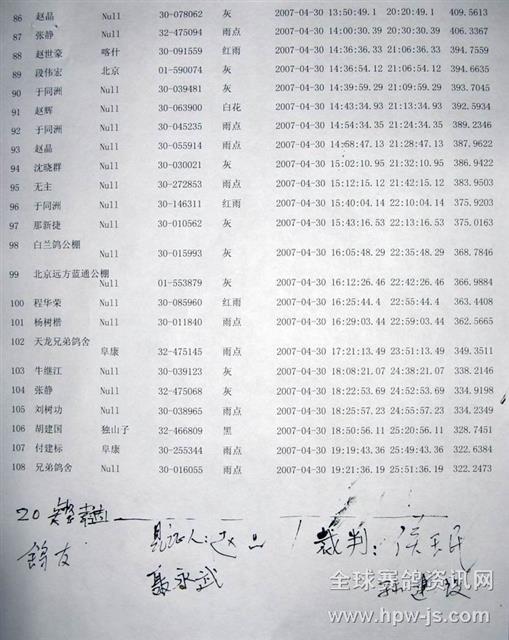 86 赵晶 Null 30-078062 灰 2007-04-30 13:50:49.1 20:20:49.1 409.5613
87 张静 Null 32-475094 雨点 2007-04-30 14:00:30.39 20:30:30.39 406.3367
88 赵世豪 喀什 30-091559 红雨 2007-04-30 14:36:36.33 21:06:36.33 394.7559
89 段伟宏 北京 01-590074 灰 2007-04-30 14:36:54.12 21:06:54.12 394.6635
90 于同洲 Null 30-039481 灰 2007-04-30 14:39:59.29 21:09:59.29 393.7045
91 赵辉 Null 30-063900 白花 2007-04-30 14:43:34.93 21:13:34.93 392.5934
92 于同洲 Null 30-045235 雨点 2007-04-30 14:54:34.35 21:24:34.35 389.2346
93 赵晶 Null 30-055914 雨点 2007-04-30 14:58:47.13 21:28:47.13 387.9622
94 沈晓群 Null 30-030021 灰 2007-04-30 15:02:10.95 21:32:10.95 386.9422
95 无主 Null 30-272853 雨点 2007-04-30 15:12:15.12 21:42:15.12 383.9503
96 于同洲 Null 30-146311 红雨 2007-04-30 15:40:04.14 22:10:04.14 375.9203
97 那新捷 Null 30-010562 灰 2007-04-30 15:43:16.53 22:13:16.53 375.0163
98 白兰鸽公棚
Null 30-015993 灰 2007-04-30 16:05:48.29 22:35:48.29 368.7846
99 北京远方蓝通公棚
Null 01-553879 灰 2007-04-30 16:12:26.46 22:42:26.46 366.9884
100 程华荣 Null 30-085960 红雨 2007-04-30 16:25:44.4 22:55:44.4 363.4408
101 杨树楷 Null 30-011840 雨点 2007-04-30 16:29:03.44 22:59:03.44 362.5665
102 天龙兄弟鸽舍
阜康 32-475145 雨点 2007-04-30 17:21:13.49 23:51:13.49 349.3511
103 牛继江 Null 30-039123 灰 2007-04-30 18:08:21.07 24:38:21.07 338.2146
104 张静 Null 32-475068 灰 2007-04-30 18:22:53.69 24:52:53.69 334.9198
105 刘树功 Null 30-038965 雨点 2007-04-30 18:25:57.23 24:55:57.23 334.2349
106 胡建国 独山子 32-466809 黑 2007-04-30 18:50:56.11 25:20:56.11 328.7451
107 付建标 阜康 30-255344 雨点 2007-04-30 19:19:43.36 25:49:43.36 322.6384
108 兄弟鸽舍 Null 30-016055 雨点 2007-04-30 19:21:36.19 25:51:36.19 322.2473
20
见证人: 裁判:
永武
全球赛鸽资讯网
www.hpw-js.com